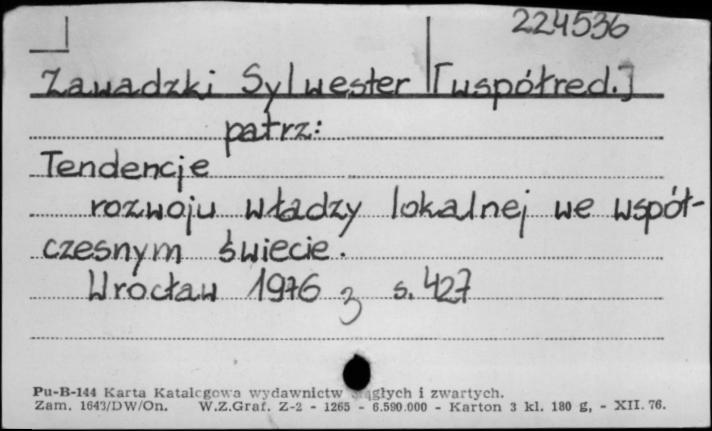 224536
Zawadzki Sylwester [współred.]
patrz:
Tendencje
rozwoju władzy lokalnej we współ-
czesnym świecie.
Wrocław 1976 s. 427
3
Pu-B-144 Karta Katalogowa wydawnictw ciągłych i zwartych.
Zam. 1643/DW/On. W.Z.Graf. Z-2 - 1265 - 6.590.000 - Karton 3 kl. 180 g, - XII. 76.